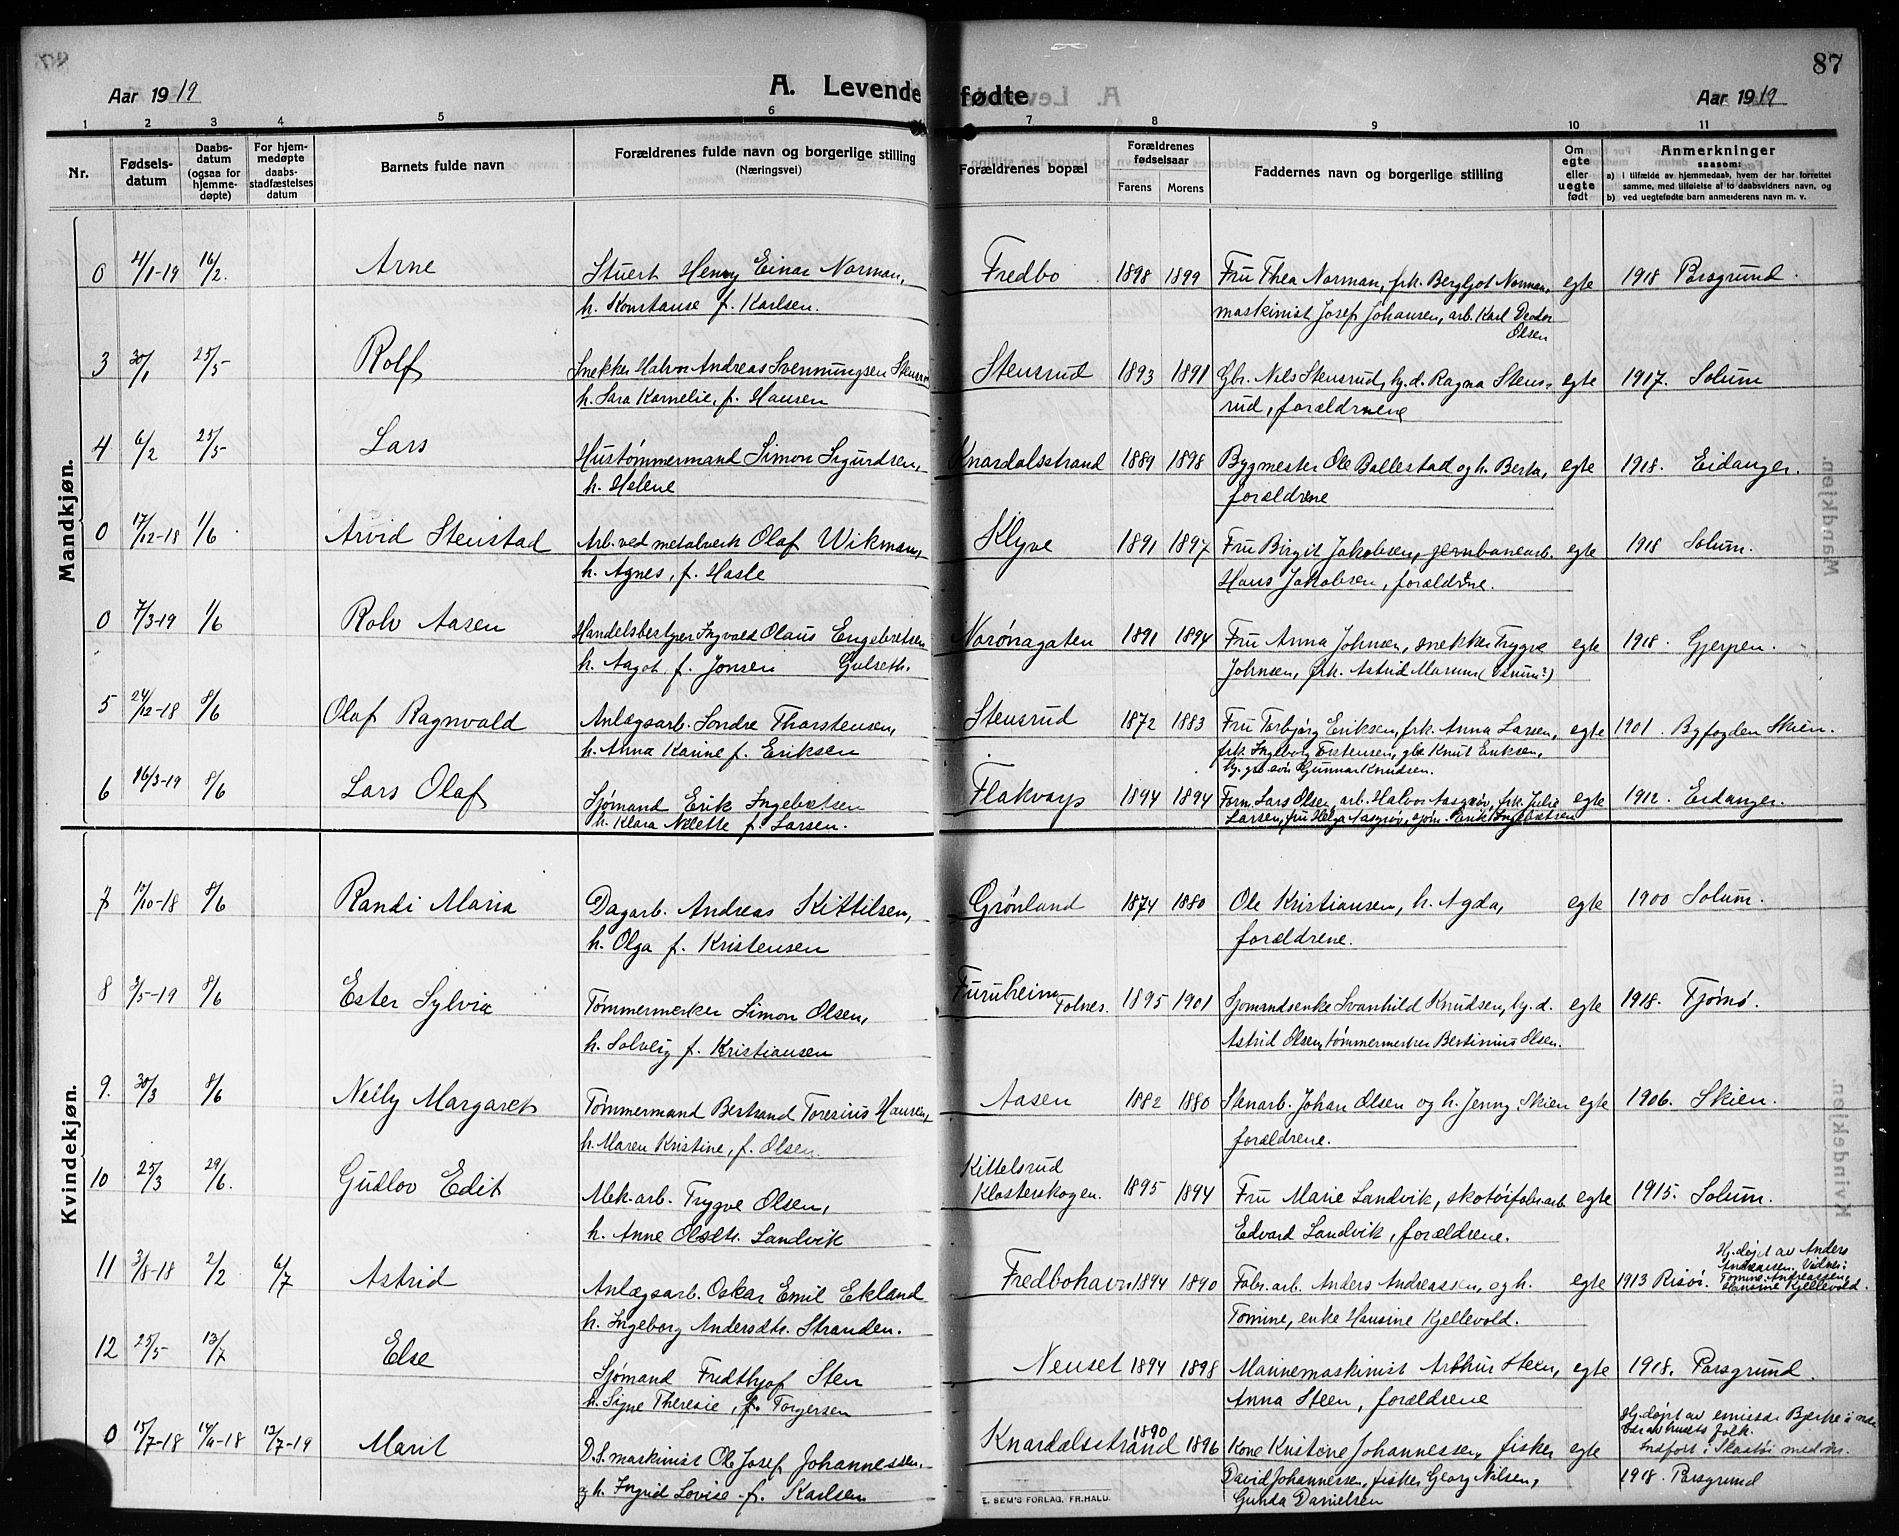 87
Aar 1919
A. Levendefødte
Aar 1919
1 2 3 4 5 6 7 8 9 10 11
Nr.
Fødsels-datum
Daabs-datum (ogsaa for hjemme-døpte)
For hjem-medøpte daabs-stadfæstelses datum
Barnets fulde navn
Forældrenes fulde navn og borgerlige stilling (Næringsvei)
Forældrenes bopæl
Forældrenes fødselsaar
Farens Morens
Faddernes navn og borgerlige stilling
Om egte eller uegte født
Anmerkninger
saasom:
a) i tilfælde av hjemmedaab, hvem der har forrettet samme, med tilføielse af to daabsvidners navn, og
b) ved uegtefødte barn anmelderens navn m. v.
Mandkjøn.
0 4/1-19 16/2. Arne Stuert Henry Einar Norman, Fredbo 1898 1899 Fru Thea Norman, frk. Bergljot Norman, egte 1918 Porsgrund.
h. Konstanse f. Karlsen. maskinist Josef Johansen, arb. Karl Teodor
Olsen
3 30/1 25/5 Rolf Snekker Halvor Andreas Svennungsen Stensrud Stensrud 1893 1891 Gbr. Nils Stensrud, hg. d. Ragna Stens- egte 1917. Solum
h. Sara Kornelie, f. Hansen rud, forældrene
4 6/2 25/5 Lars Hustømmermand Simon Sigurdsen, Knardalsstrand 1889 1898 Bygmester Ole Ballestad og h. Berta, egte 1918. Eidanger.
h. Helene forældrene
0 17/12-18 1/6 Arvid Stenstad Arb. ved metalverk Olaf Wikman, Klyve 1891 1897 Fru Birgit Jakobsen, jernbanearb. egte 1918 Solum.
h. Agnes, f. Hasle Hans Jakobsen, forældrene.
0 7/3-19 1/6 Rolv Aasen Handelsbestyrer Ingvald Olaus Engebretsen Norønagaten 1891 1894 Fru Anna Johnsen, snekker Trygve egte 1918. Gjerpen.
h. Aagot f. Jonsen Gulseth. Johnsen, frk. Astrid Marum (Venum?)
5 24/12-18 8/6 Olaf Ragnvald Anlægsarb. Sondre Thorstensen, Stensrud 1872 1883 Fru Torbjørg Eriksen, frk. Anna Larsen, egte 1901. Byfogden Skien.
h. Anna Karine f. Eriksen frk. Ingeborg Torstensen, gbr. Knut Eriksen,
hg. grb. søn Gunnar Knudsen.
6 16/3-19 8/6 Lars Olaf Sjømand Erik Ingebretsen Flakvarp 1894 1894 Form. Lars Olsen, arb. Halvor Aasgrøv, frk. Julie egte 1912. Eidanger.
h. Klara Nilette f. Larsen. Larsen, fru Helga Aasgrøv, sjøm. Erik Ingebretsen
Kvindekjøn.
7 12/10-18 8/6 Randi Maria Dagarb. Andreas Kittilsen, Grønland 1874 1880 Ole Kristiansen, h. Agda, egte 1900 Solum.
h. Olga f. Kristensen forældrene.
8 2/5-19 8/6 Ester Sylvia Tømmermerker Simon Olsen, Furuheim Tolnes. 1895 1901 Sjømandsenke Svanhild Knudsen, hg. d. egte 1918. Tjømø.
h. Solveig f. Kristiansen Astrid Olsen, tømmermerker Bertinius Olsen.
9. 30/3 8/6 Nelly Margaret Tømmermand Bertrand Toresius Hansen, Aasen 1882 1880 Stenarb. Johan Olsen og h. Jenny. Skien egte 1906. Skien.
h. Maren Kristine, f. Olsen. forældrene.
10 25/3 29/6. Gudlov Edit Mek. arb. Trygve Olsen, Kittelsrud Klosterskogen. 1895 1894 Fru Marie Sandvik, skotøifabr. arb. egte 1915. Solum.
h. Anne Olsdtr. Sandvik Edvard Sandvik, forældrene.
11 3/8-18 2/2 6/7 Astrid Anlægsarb. Oskar Emil Ekland Fredbohavn 1894 1890 Fabr. arb. Anders Andreassen, og h. egte 1913 Risør. Hj. døpt av Anders Andreassen. Vidner: Tomine Andreassen, Hansine Kjellevold.
h. Ingeborg Andersdtr. Stranden. Tomine, enke Hansine Kjellevold.
12 25/5 13/7 Else Sjømand Fredthjof Sten Nenset 1894 1898 Marinemaskinist Arthur Steen, egte 1918. Porsgrund.
h. Signe Theresie, f. Torgersen Anna Steen, forældrene
0 15/7-18 14/9-18 12/7-19 Marit D.S. maskinist Ole Josef Johannessen. Knardalsstrand 1890 1896 Kone Kristine Johannessen, fisker egte Hj. døpt av emissær Bjerke i nærvær av husets folk.
Indført i Skaatøi med nr.
og h. Ingrid Lovise f. Karlsen David Johannessen, fisker Georg Nilsen, 1918. Porsgrund
Gunda Danielsen
E. SEM'S FORLAG, FR.HALD.